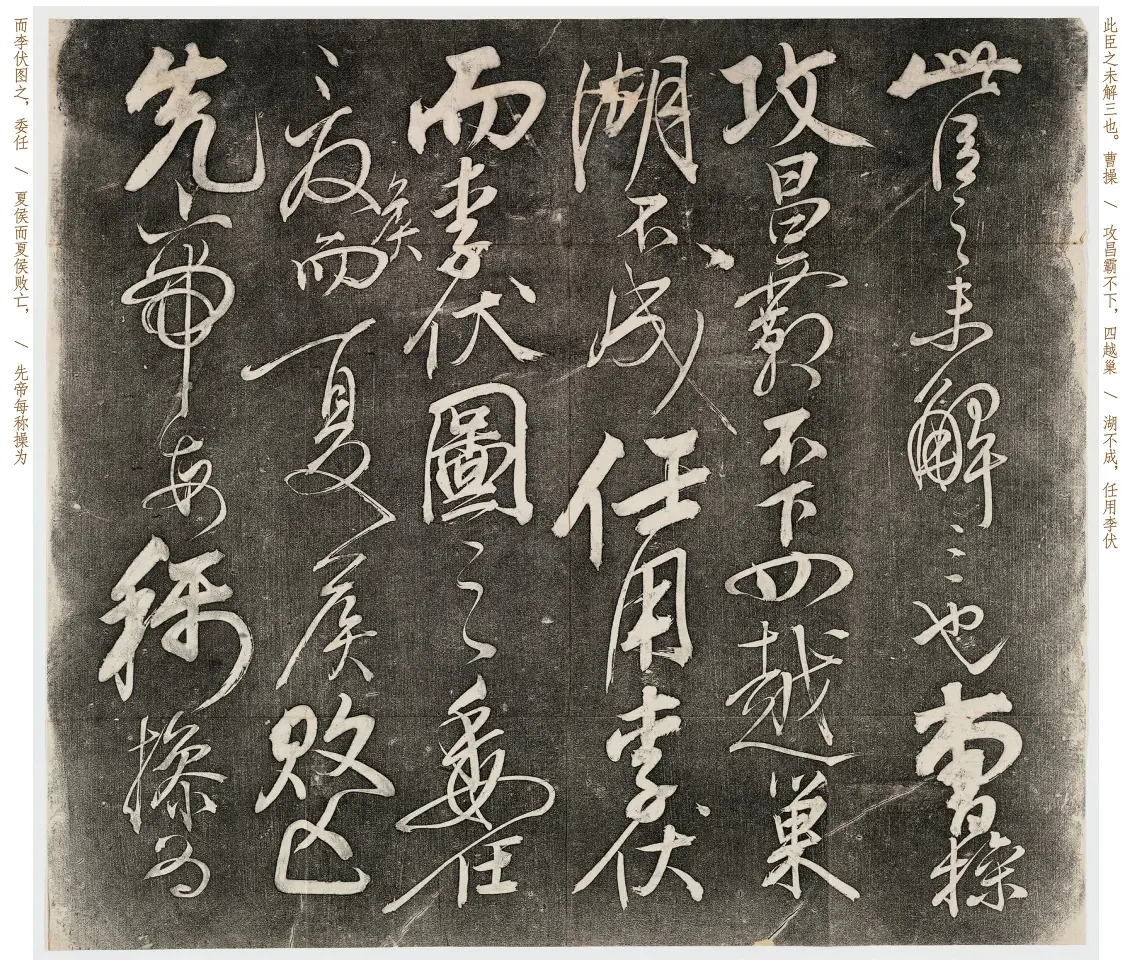 此臣之未解三也。曹操 / 攻昌霸不下，四越巢 / 湖不成，任用李伏
此臣之未解三也曹操
攻昌霸不下四越巢
湖不成任用李伏
而李伏圖之委任
夏侯而夏侯敗亡
先帝每稱操為
而李伏图之，委任 / 夏侯而夏侯败亡， / 先帝每称操为